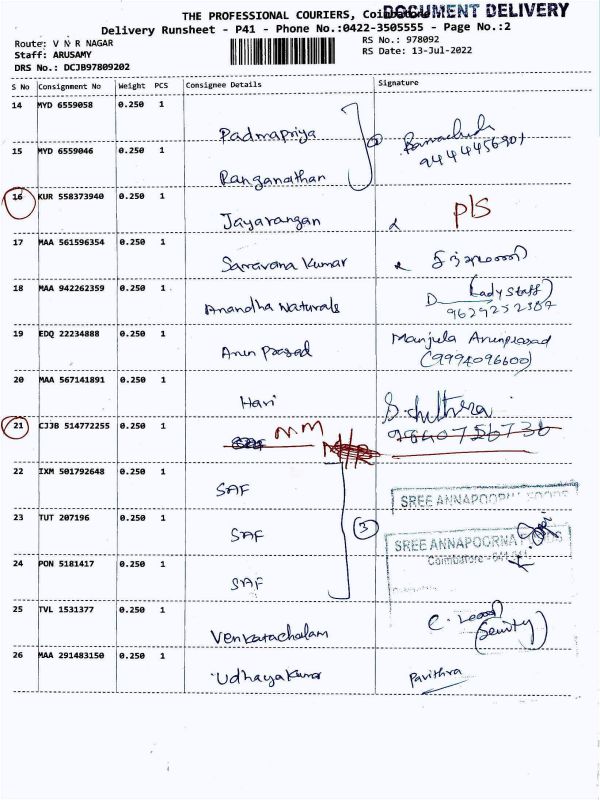 THE PROFESSIONAL COURIERS, Coimbatore
DOCUMENT DELIVERY
Delivery Runsheet - P41 - Phone No.:0422-3505555 - Page No.:2
Route: V N R NAGAR
RS No.: 978092
Staff: ARUSAMY
RS Date: 13-Jul-2022
DRS No.: DCJB97809202
S No Consignment No Weight PCS Consignee Details Signature
14 MYD 6559058 0.250 1 Padmapriya
15 MYD 6559046 0.250 1 Ranganathan
9444456901
16 KUR 558373940 0.250 1 Jayarangan P/S
17 MAA 561596354 0.250 1 Saravana Kumar
18 MAA 942262359 0.250 1 Anandha Naturals (Lady Staff)
19 EDQ 22234888 0.250 1 Arun Prasad Manjula Arunprasad
(9994096600)
20 MAA 567141891 0.250 1 Hari S. Chithra
21 CJJB 514772255 0.250 1 NM
22 IXM 501792648 0.250 1 SAF
SREE ANNAPOORNA FOODS
23 TUT 207196 0.250 1 SAF 3
SREE ANNAPOORNA FOODS
Coimbatore
24 PON 5181417 0.250 1 SAF
25 TVL 1531377 0.250 1 Venkatachalam
26 MAA 291483150 0.250 1 Udhayakumar Pavithra